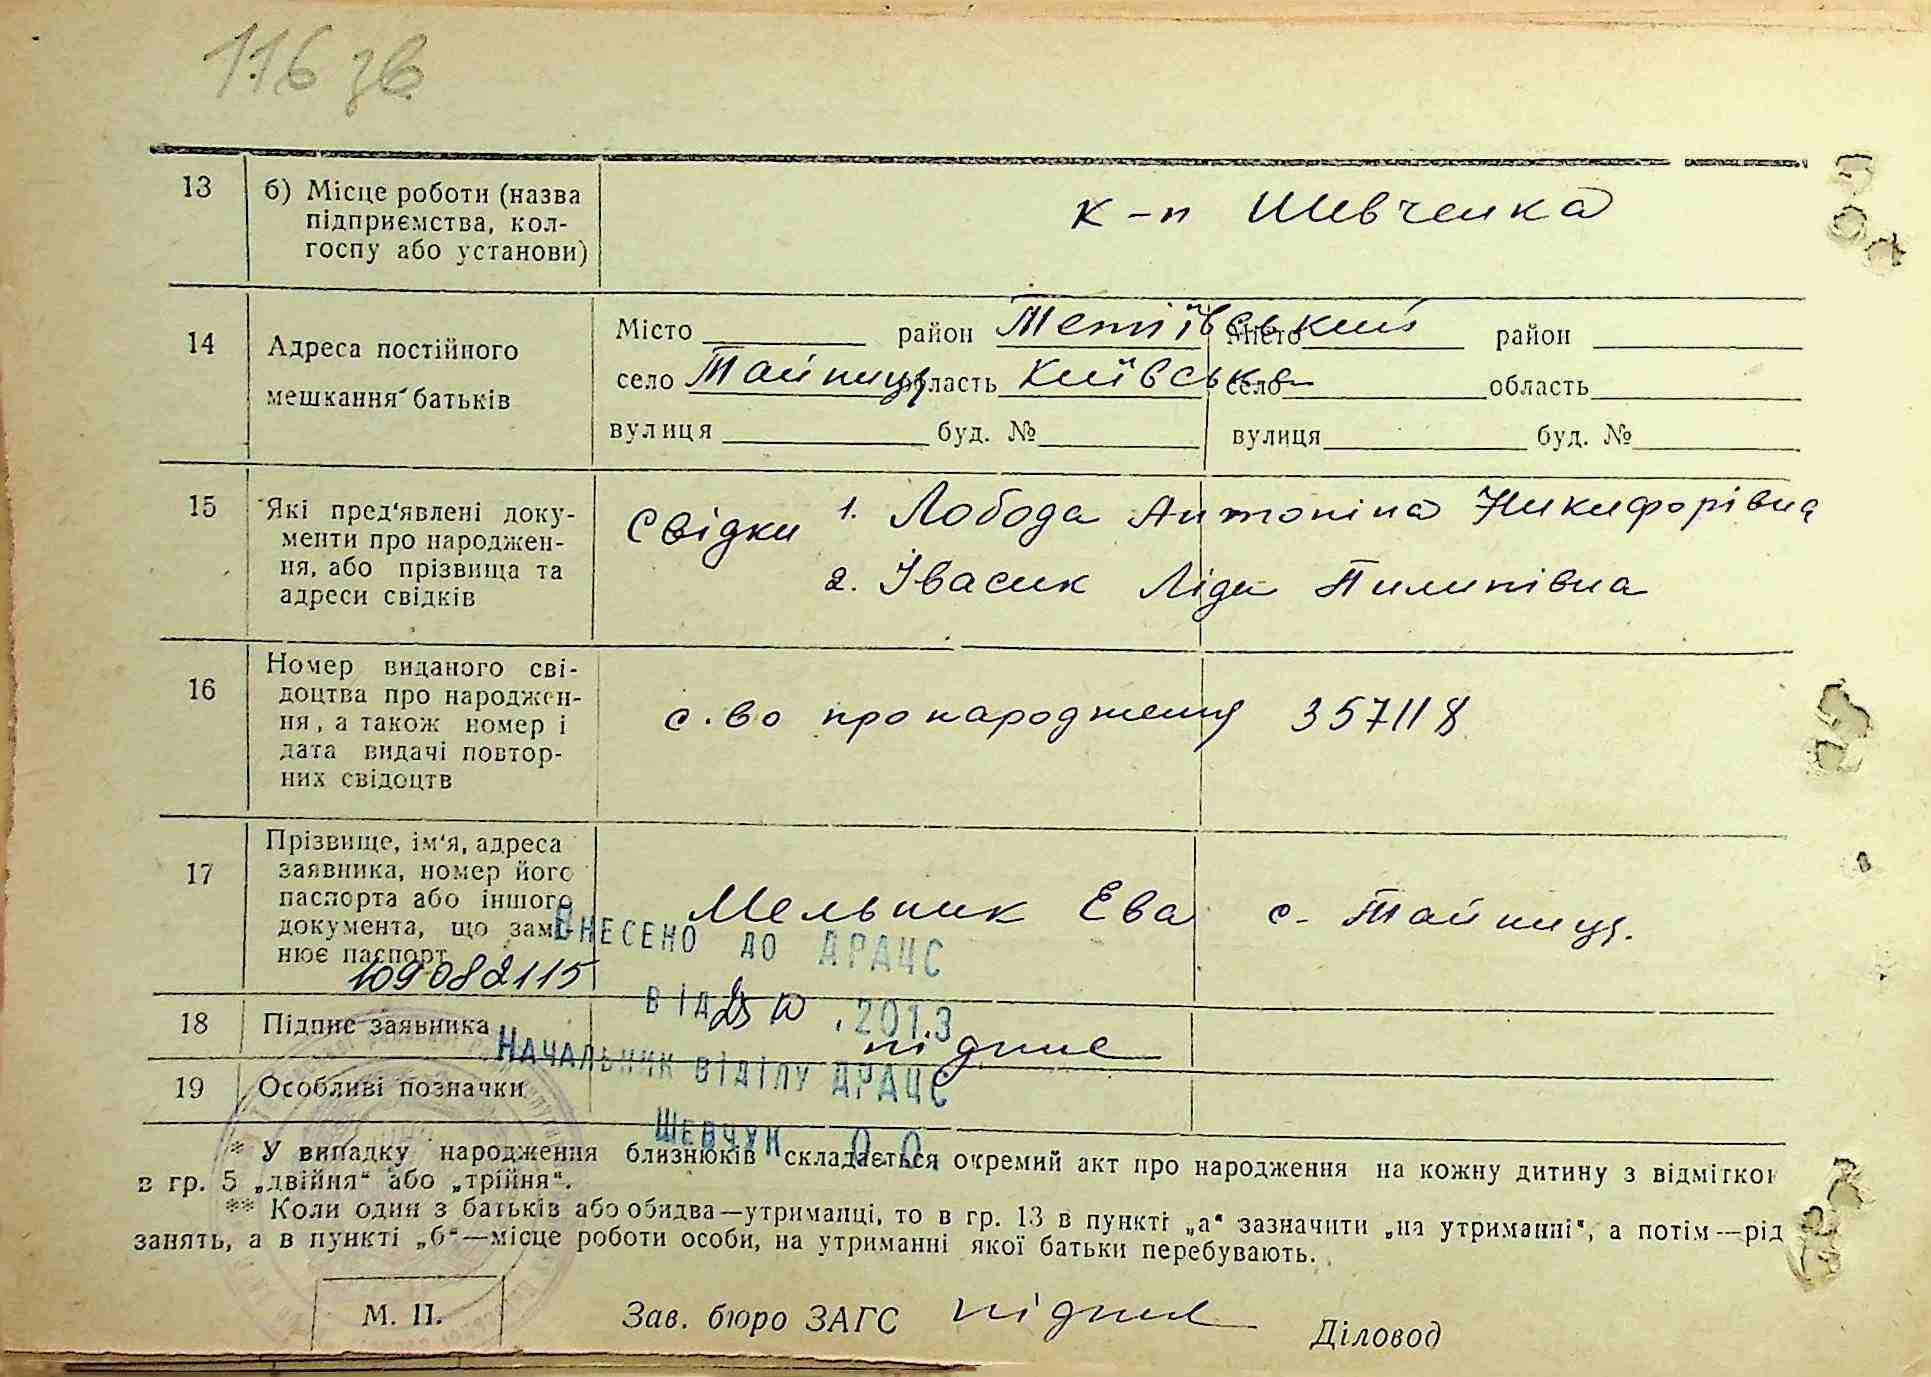 116 зв.
13 б) Місце роботи (назва
підприємства, кол-
госпу або установи)
к-п Шевченка
14 Адреса постійного
мешкання батьків
Місто район Тетіївський Місто район
село Тайниця область Київська село область
вулиця буд. № вулиця буд. №
15 Які пред'явлені доку-
менти про народжен-
ня, або прізвища та
адреси свідків
Свідки 1. Лобода Антоніна Никифорівна
2. Івасик Ліда Пилипівна
16 Номер виданого сві-
доцтва про народжен-
ня, а також номер і
дата видачі повтор-
них свідоцтв
с-во про народження 357118
17 Прізвище, ім'я, адреса
заявника, номер його
паспорта або іншого
документа, що замі-
нює паспорт
Мельник Ева с. Тайниця.
109082115
Внесено до ДРАЦС
від 10.2013
Начальник відділу ДРАЦС
Шевчук О.О.
18 Підпис заявника підпис
19 Особливі позначки
* У випадку народження близнюків складається окремий акт про народження на кожну дитину з відміткою
в гр. 5 „двійня“ або „трійня“.
** Коли один з батьків або обидва—утриманці, то в гр. 13 в пункті „а“ зазначити „на утриманні“, а потім—рід
занять, а в пункті „б“—місце роботи особи, на утриманні якої батьки перебувають.
М. П. Зав. бюро ЗАГС підпис Діловод